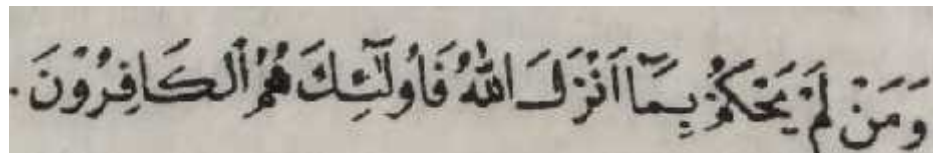 وَمَنْ لَمْ يَحْكُمْ بِمَآ اَنْزَلَ اللّٰهُ فَأُولٰٓئِكَ هُمُ الْكَافِرُوْنَ .